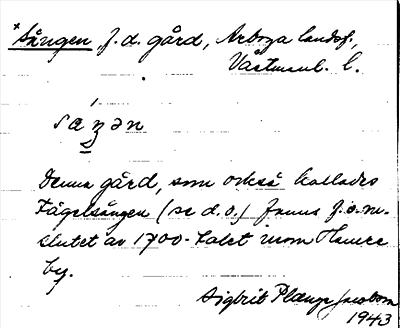 *Sången, f.d. gård, Arboga landsf.,
Västmanl. l.
Denna gård, som också kallades
Fågelsången (se d.o.) fanns f.o.m.
slutet av 1700-talet inom Hamre
by.
Sigbrit Plænge Jacobson
1943